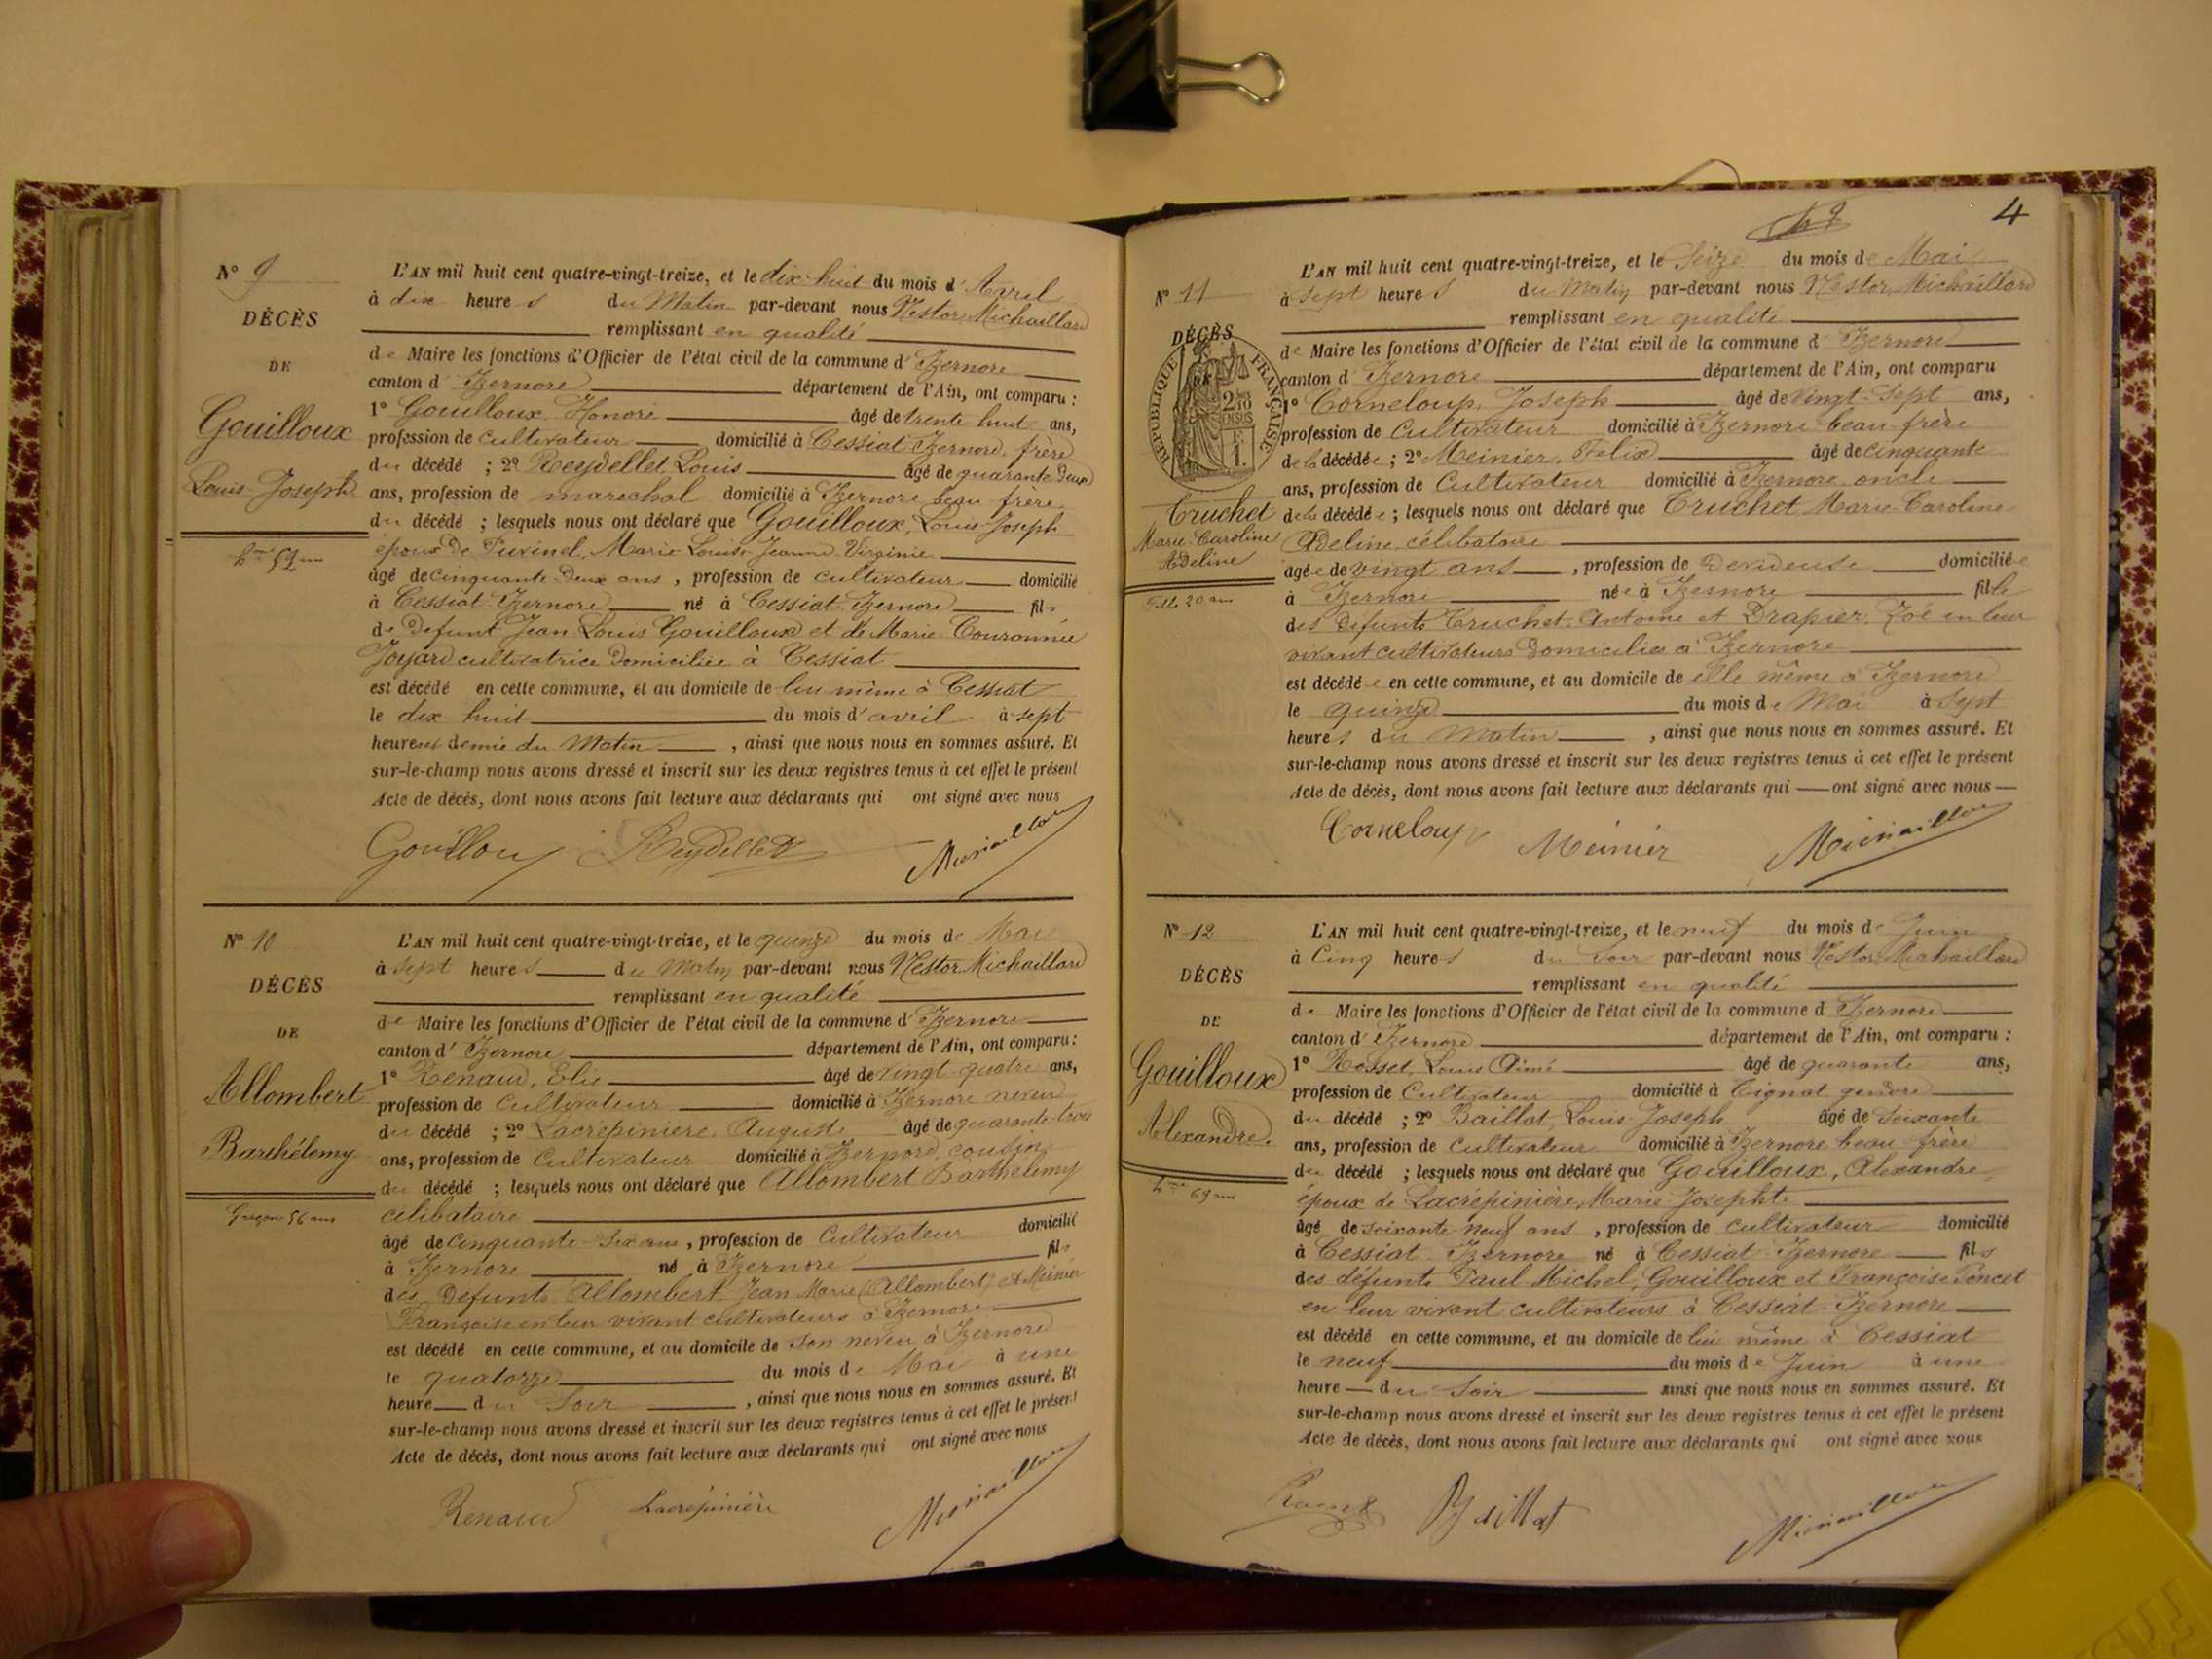 N° 9
DÉCÈS
DE
Gouilloux
Louis-Joseph
L'AN mil huit cent quatre-vingt-treize, et le dix-huit du mois d'Avril
à dix heures du Matin par-devant nous Nestor Michaillard
remplissant en qualité
de Maire les fonctions d'Officier de l'état civil de la commune d'Izernore
canton d'Izernore département de l'Ain, ont comparu :
1° Gouilloux, Honoré âgé de trente huit ans,
profession de cultivateur domicilié à Cessiat-Izernore, frère
du décédé ; 2° Reydellet Louis âgé de quarante Deux
ans, profession de marechal domicilié à Izernore beau frère
du décédé ; lesquels nous ont déclaré que Gouilloux, Louis-Joseph
époux De Marie-Louise-Jeanne-Virginie
âgé de Cinquante-Deux ans, profession de cultivateur domicilié
à Cessiat-Izernore né à Cessiat-Izernore fils
de Défunt Jean Louis Gouilloux et de Marie Couronnée
Joyard cultivatrice Domiciliée à Cessiat
est décédé en cette commune, et au domicile de lui même à Cessiat
le dix huit du mois d'avril à sept
heures et demie du Matin, ainsi que nous nous en sommes assuré. Et
sur-le-champ nous avons dressé et inscrit sur les deux registres tenus à cet effet le présent
Acte de décès, dont nous avons fait lecture aux déclarants qui ont signé avec nous
Gouilloux Reydellet Michaillard
N° 10
DÉCÈS
DE
Allombert
Barthélemy
Garçon 56 ans
L'AN mil huit cent quatre-vingt-treize, et le quinze du mois de Mai
à sept heures du Matin par-devant nous Nestor Michaillard
remplissant en qualité
de Maire les fonctions d'Officier de l'état civil de la commune d'Izernore
canton d'Izernore département de l'Ain, ont comparu :
1° Renaud, Elie âgé de vingt-quatre ans,
profession de Cultivateur domicilié à Izernore neveu
du décédé ; 2° Lacrépinière, Auguste âgé de quarante trois
ans, profession de Cultivateur domicilié à Izernore, cousin
du décédé ; lesquels nous ont déclaré que Allombert Barthélemy
célibataire
âgé de Cinquante-Six ans, profession de Cultivateur domicilié
à Izernore né à Izernore fils
des Défunts Allombert Jean Marie (Allombert) et Meinier
Françoise en leur vivant cultivateurs à Izernore
est décédé en cette commune, et au domicile de son neveu à Izernore
le quatorze du mois de Mai à une
heure du Soir, ainsi que nous nous en sommes assuré. Et
sur-le-champ nous avons dressé et inscrit sur les deux registres tenus à cet effet le présent
Acte de décès, dont nous avons fait lecture aux déclarants qui ont signé avec nous
Renaud Lacrépinière Michaillard
4
N° 11
DÉCÈS
RÉPUBLIQUE FRANÇAISE
Truchet
Marie-Caroline
Adeline
Fille 20 ans
L'AN mil huit cent quatre-vingt-treize, et le Seize du mois de Mai
à Sept heures du Matin par-devant nous Nestor Michaillard
remplissant en qualité
de Maire les fonctions d'Officier de l'état civil de la commune d'Izernore
canton d'Izernore département de l'Ain, ont comparu
1° Corneloup, Joseph âgé de Vingt-Sept ans,
profession de Cultivateur domicilié à Izernore beau-frère
de la décédée ; 2° Meinier, Felix âgé de cinquante
ans, profession de Cultivateur domicilié à Izernore oncle
de la décédée ; lesquels nous ont déclaré que Truchet Marie-Caroline-
Adeline célibataire
âgée de vingt ans, profession de Devideuse domiciliée
à Izernore née à Izernore fille
des Défunts Truchet, Antoine et Drapier, Zoé en leur
vivant cultivateurs Domiciliés à Izernore
est décédée en cette commune, et au domicile de elle même à Izernore
le quinze du mois de Mai à Sept
heures du Matin, ainsi que nous nous en sommes assuré. Et
sur-le-champ nous avons dressé et inscrit sur les deux registres tenus à cet effet le présent
Acte de décès, dont nous avons fait lecture aux déclarants qui ont signé avec nous
Corneloup Meinier Michaillard
N° 12
DÉCÈS
DE
Gouilloux
Alexandre
L'AN mil huit cent quatre-vingt-treize, et le neuf du mois de Juin
à Cinq heures du Soir par-devant nous Nestor Michaillard
remplissant en qualité
de Maire les fonctions d'Officier de l'état civil de la commune d'Izernore
canton d'Izernore département de l'Ain, ont comparu :
1° Rosset, Louis Aimé âgé de quarante ans,
profession de Cultivateur domicilié à Tignat gendre
du décédé ; 2° Baillat, Louis-Joseph âgé de Soixante
ans, profession de cultivateur domicilié à Izernore beau-frère
du décédé ; lesquels nous ont déclaré que Gouilloux, Alexandre,
époux de Lacrépinière, Marie-Josephte
âgé de soixante-neuf ans, profession de cultivateur domicilié
à Cessiat-Izernore né à Cessiat-Izernore fils
des défunts Paul-Michel, Gouilloux et Françoise Poncet
en leur vivant cultivateurs à Cessiat-Izernore
est décédé en cette commune, et au domicile de lui même à Cessiat
le neuf du mois de Juin à une
heure du Soir ainsi que nous nous en sommes assuré. Et
sur-le-champ nous avons dressé et inscrit sur les deux registres tenus à cet effet le présent
Acte de décès, dont nous avons fait lecture aux déclarants qui ont signé avec nous
Rosset Baillat Michaillard